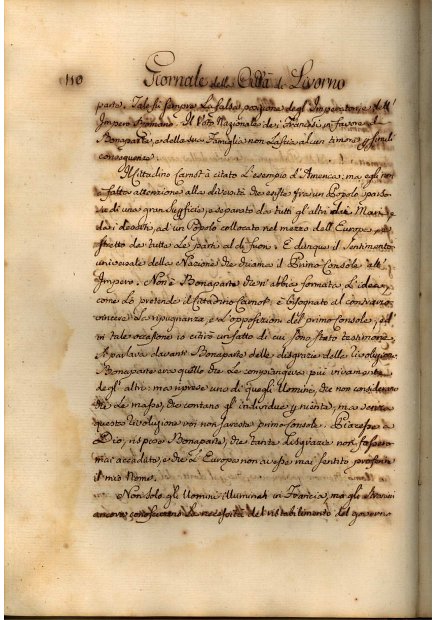 110 Giornale della Città di Livorno
parte. Tale fù sempre la falsa posizione degl'Imperatori dell'
Impero Romano. Il Voto Nazionale de i Francesi in favore di
Bonaparte, e della sua Famiglia non lascia alcun timore di simili
conseguenze.
Il Cittadino Carnot à citato l'esempio d'America, ma egli non
à fatto attenzione alla diversità che esiste fra un Popolo sparso
su di una gran superficie, e separato da tutti gli altri da i Mari, e
da i deserti, ad un Popolo collocato nel mezzo dell'Europa, e
stretto da tutte le parti al di fuori. È dunque il Sentimento
universale della Nazione che chiama il Primo Console all'
Impero. Non è Bonaparte che n'abbia formata l'idea,
come lo pretende il Cittadino Carnot, è bisognato al contrario
vincere la ripugnanza, e l'opposizione del primo Console, ed
in tale occasione io citerò un fatto di cui sono stato testimone.
Si parlava davanti Bonaparte delle disgrazie della Rivoluzione
Bonaparte era quello che le compiangeva più vivamente
degl'altri: ma riprese uno di quegli Uomini, che non considerano
che le masse, che contano gl'individui per niente, ma senza
questa Rivoluzione voi non sareste primo Console. Piacesse a
Dio, rispose Bonaparte, che tante disgrazie non fossero
mai accadute, e che l'Europa non avesse mai sentito proferire
il mio Nome.
Non solo gli Uomini illuminati in Francia, ma gli
ancora conoscevano la necessità del ristabilimento del governo